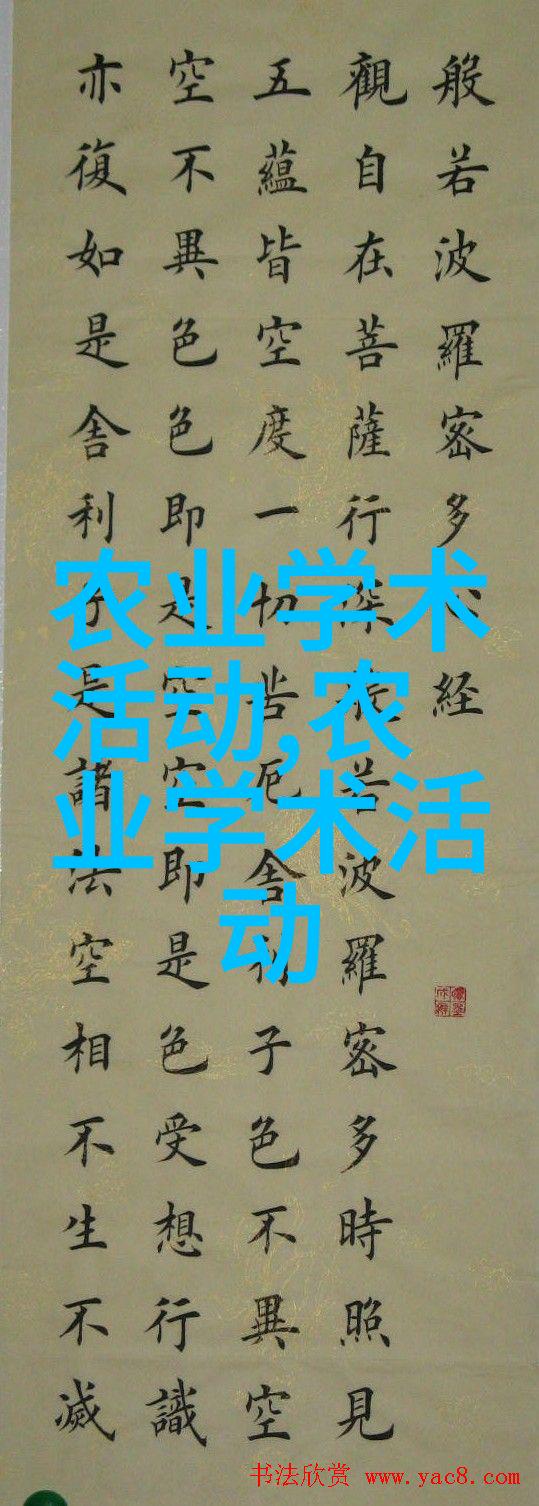 般若波羅密多心経
觀自在菩薩行深般若波羅密多時照見
五蘊皆空度一切苦厄舍利子色不異空
空不異色色即是空空即是色受想行識
亦復如是舍利子是諸法空相不生不滅
农业学术
活动,农
业学术活
动
书法欣赏 www.yac8.com